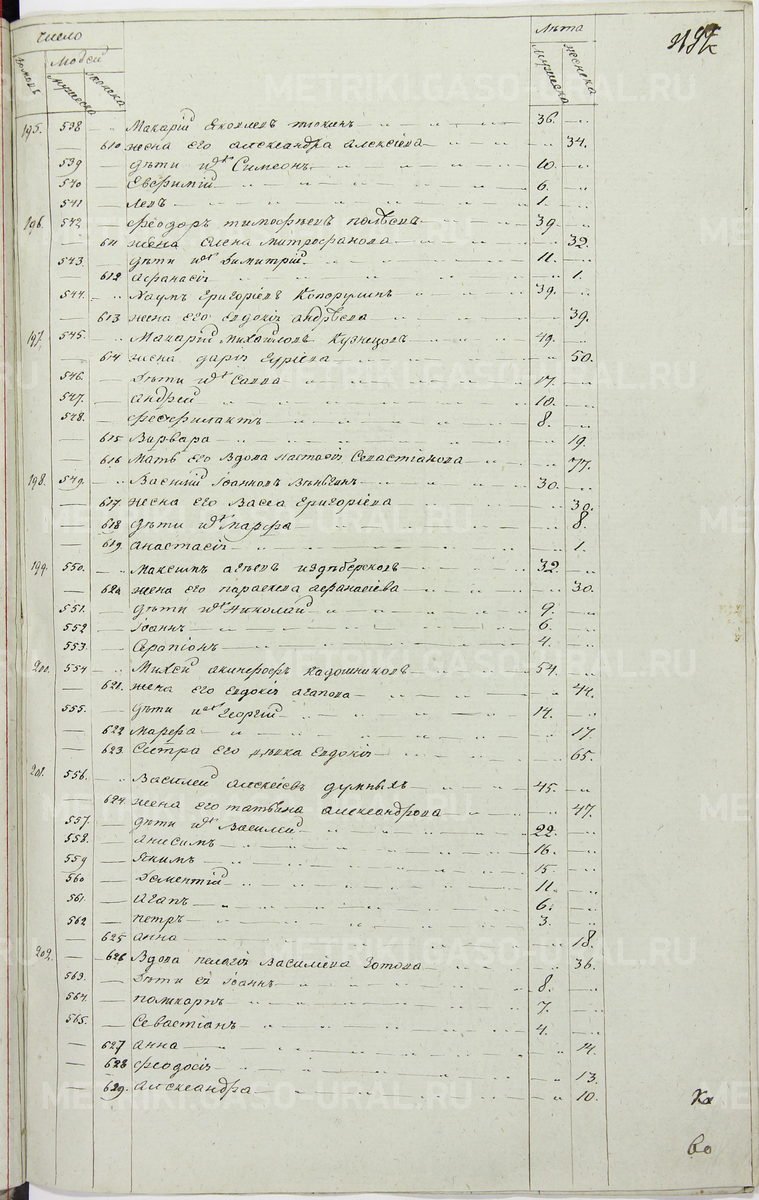 число
домовъ
людей
мужеска
женска
Лѣта
мужеска
женска
195. 538 Макарій Яковлевъ 36.
610 жена его александра алексѣева 34.
539 дѣти ихъ Симеонъ 10.
540 Евфимій 6.
541 Левъ 1.
196. 542 феодоръ тимофѣевъ 39.
611 жена Елена митрофанова 32.
543. дѣти ихъ Димитрій 11.
612 афанасія 1.
544. Наумъ Григоріевъ 39.
613 жена его Евдокія андрѣева 39.
197. 545. Макарій михайловъ Кузнецовъ 49.
614 жена дарія 50.
546. Дѣти ихъ Савва 17.
547. андрей 10.
548. феофилактъ 8.
615 Варвара 19.
616 Мать его Вдова настасія Севастіанова 77.
198. 549. Василій Іоанновъ 30.
617 жена его Васса Григоріева 30.
618 дѣти ихъ марфа 8.
619 анастасія 1.
199. 550. Максимъ 32
620 жена его параскева афанасіева 30.
551. дѣти ихъ николай 9.
552 Іоаннъ 6.
553. Серапіонъ 4.
200. 554 Михей Кадошниковъ 54.
621. жена его Евдокія агапова 44.
555. дѣти ихъ Георгій 14.
622 марфа 17.
623 Сестра его дѣвка Евдокія 65.
201. 556. Василей алексѣевъ думныхъ 45.
624 жена его татьяна александрова 47.
557. дѣти ихъ Василей 22.
558. анисимъ 16.
559 Якимъ 15.
560 Дометій 11.
561. Агапъ 6.
562 петръ 3.
625 анна 18.
202. 626 Вдова пелагія Василіева Зотова 36.
563. Дѣти ея Іоаннъ 8.
564. поликарпъ 7.
565. Севастіанъ 4.
627 анна 14.
628 феодосія 13.
629. александра 10.
во
METRIKI.GASO-URAL.RU